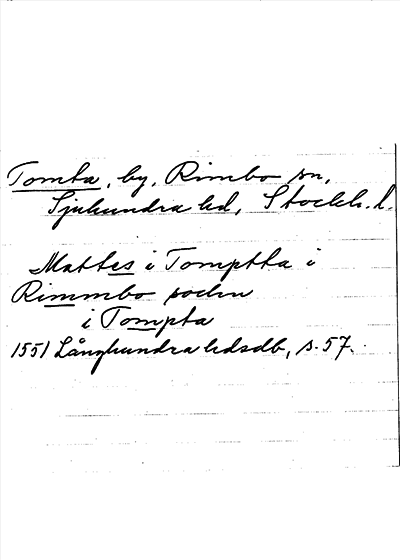 Tomta, by, Rimbo sn,
Sjuhundra hd, Stockh. l.
Mattes i Tomptta i
Rimmbo sochn
i Tompta
1551 Långhundra hdsdb, s. 57.